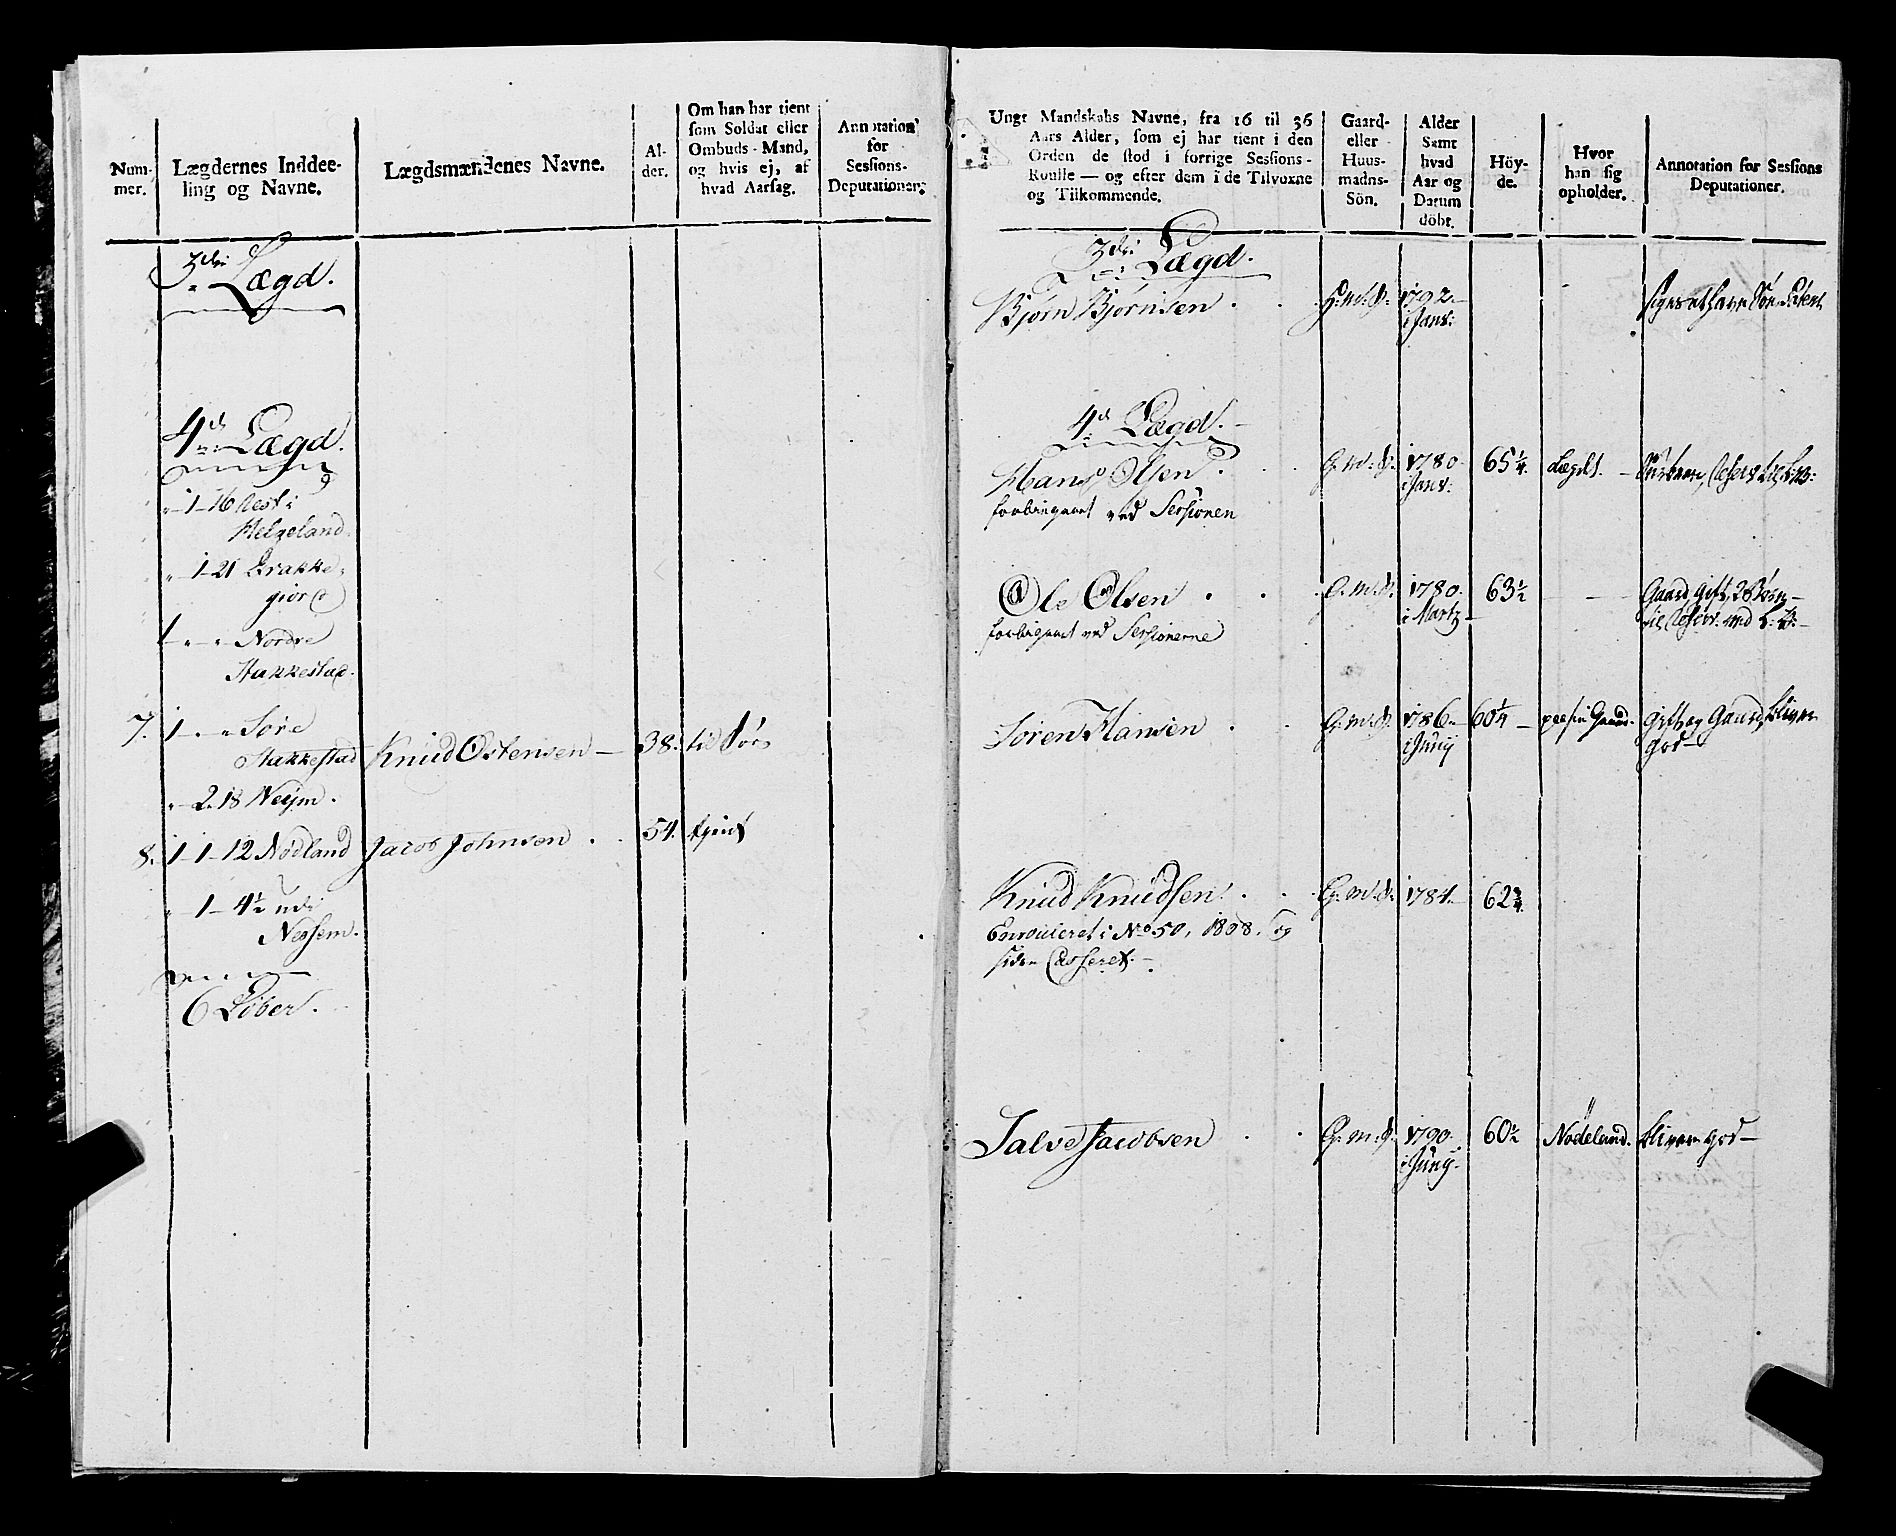 Num-
mer.
Lægdernes Inddee-
ling og Navne.
Lægdsmændenes Navne.
Al-
der.
Om han har tient
som Soldat eller
Ombuds-Mand,
og hvis ej, af
hvad Aarsag.
Annotation
for
Sessions-
Deputationer.
3die Lægd.
4de Lægd.
1-16
Helgeland
1-21 Brakke-
giord
1 " " Nordre
Stakkestad.
7. 1 " " Søre
Stakkestad Knud Ostensen — 38.
2. 18
8. 1-1-12 Nødland Jacob Johnsen . 54. tient
1-4½ udi
Nessem.
6 Løber.
Ungt Mandskabs Navne, fra 16 til 36
Aars Alder, som ej har tient i den
Orden de stod i forrige Sessions-
Roulle — og efter dem i de Tilvoxne
og Tilkommende.
Gaard-
eller
Huus-
madns-
Sön.
Alder
Samt
hvad
Aar og
Datum
döbt.
Höy-
de.
Hvor
han sig
opholder.
Annotation for Sessions
Deputationer.
3die Lægd.
Bjørn Bjørnsen . . 1792.
i Janv:
4de Lægd.
Hans Olsen . . G.m.S. 1780. 65¼ Lægdt.
i Janv:
forbigaaet ved Sessionen
Ole Olsen . . G.m.S. 1780. 63½ Gaard, gift, 2 Børn
i Martz
forbigaaet ved Sessionerne
Søren Hansen . . G.m.S. 1786. 60¼ paa sin Gaard. gift og Gaard, bliver
i Junij god—
Knud Knudsen . . G.m.S. 1784. 62¾
Enroulleret i No 50, 1808. og
siden Casseret.
Salve Jacobsen . . G.m.S. 1790. 60½ Nødeland. bliver god—
i Junij